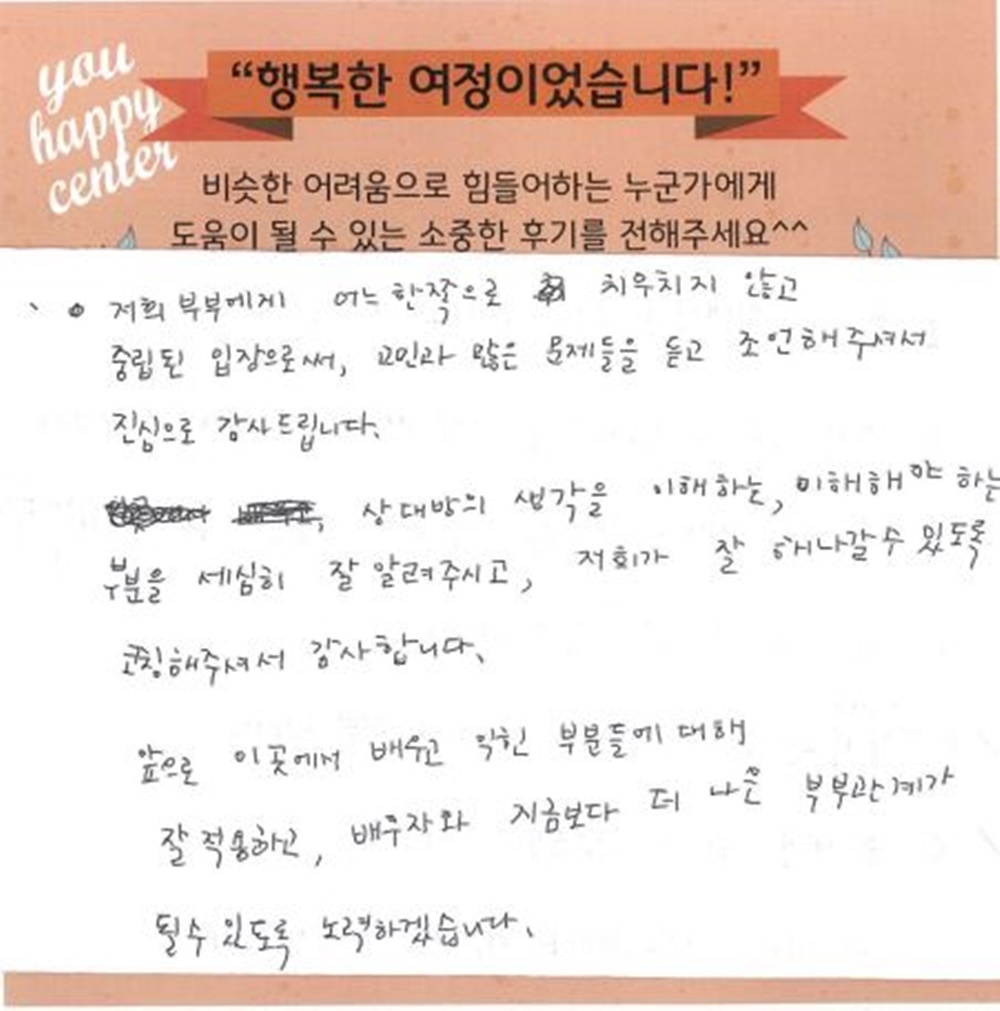 you
happy
center
“행복한 여정이었습니다!”
비슷한 어려움으로 힘들어하는 누군가에게
도움이 될 수 있는 소중한 후기를 전해주세요^^
저희 부부에게 어느 한쪽으로 치우치지 않고
중립된 입장으로써, 고민과 많은 문제들을 듣고 조언해주셔서
진심으로 감사드립니다.
상대방의 생각을 이해하는, 이해해야 하는
부분을 세심히 잘 알려주시고, 저희가 잘 해나갈 수 있도록
코칭해주셔서 감사합니다.
앞으로 이곳에서 배우고 익힌 부분들에 대해
잘 적용하고, 배우자와 지금보다 더 나은 부부관계가
될 수 있도록 노력하겠습니다.